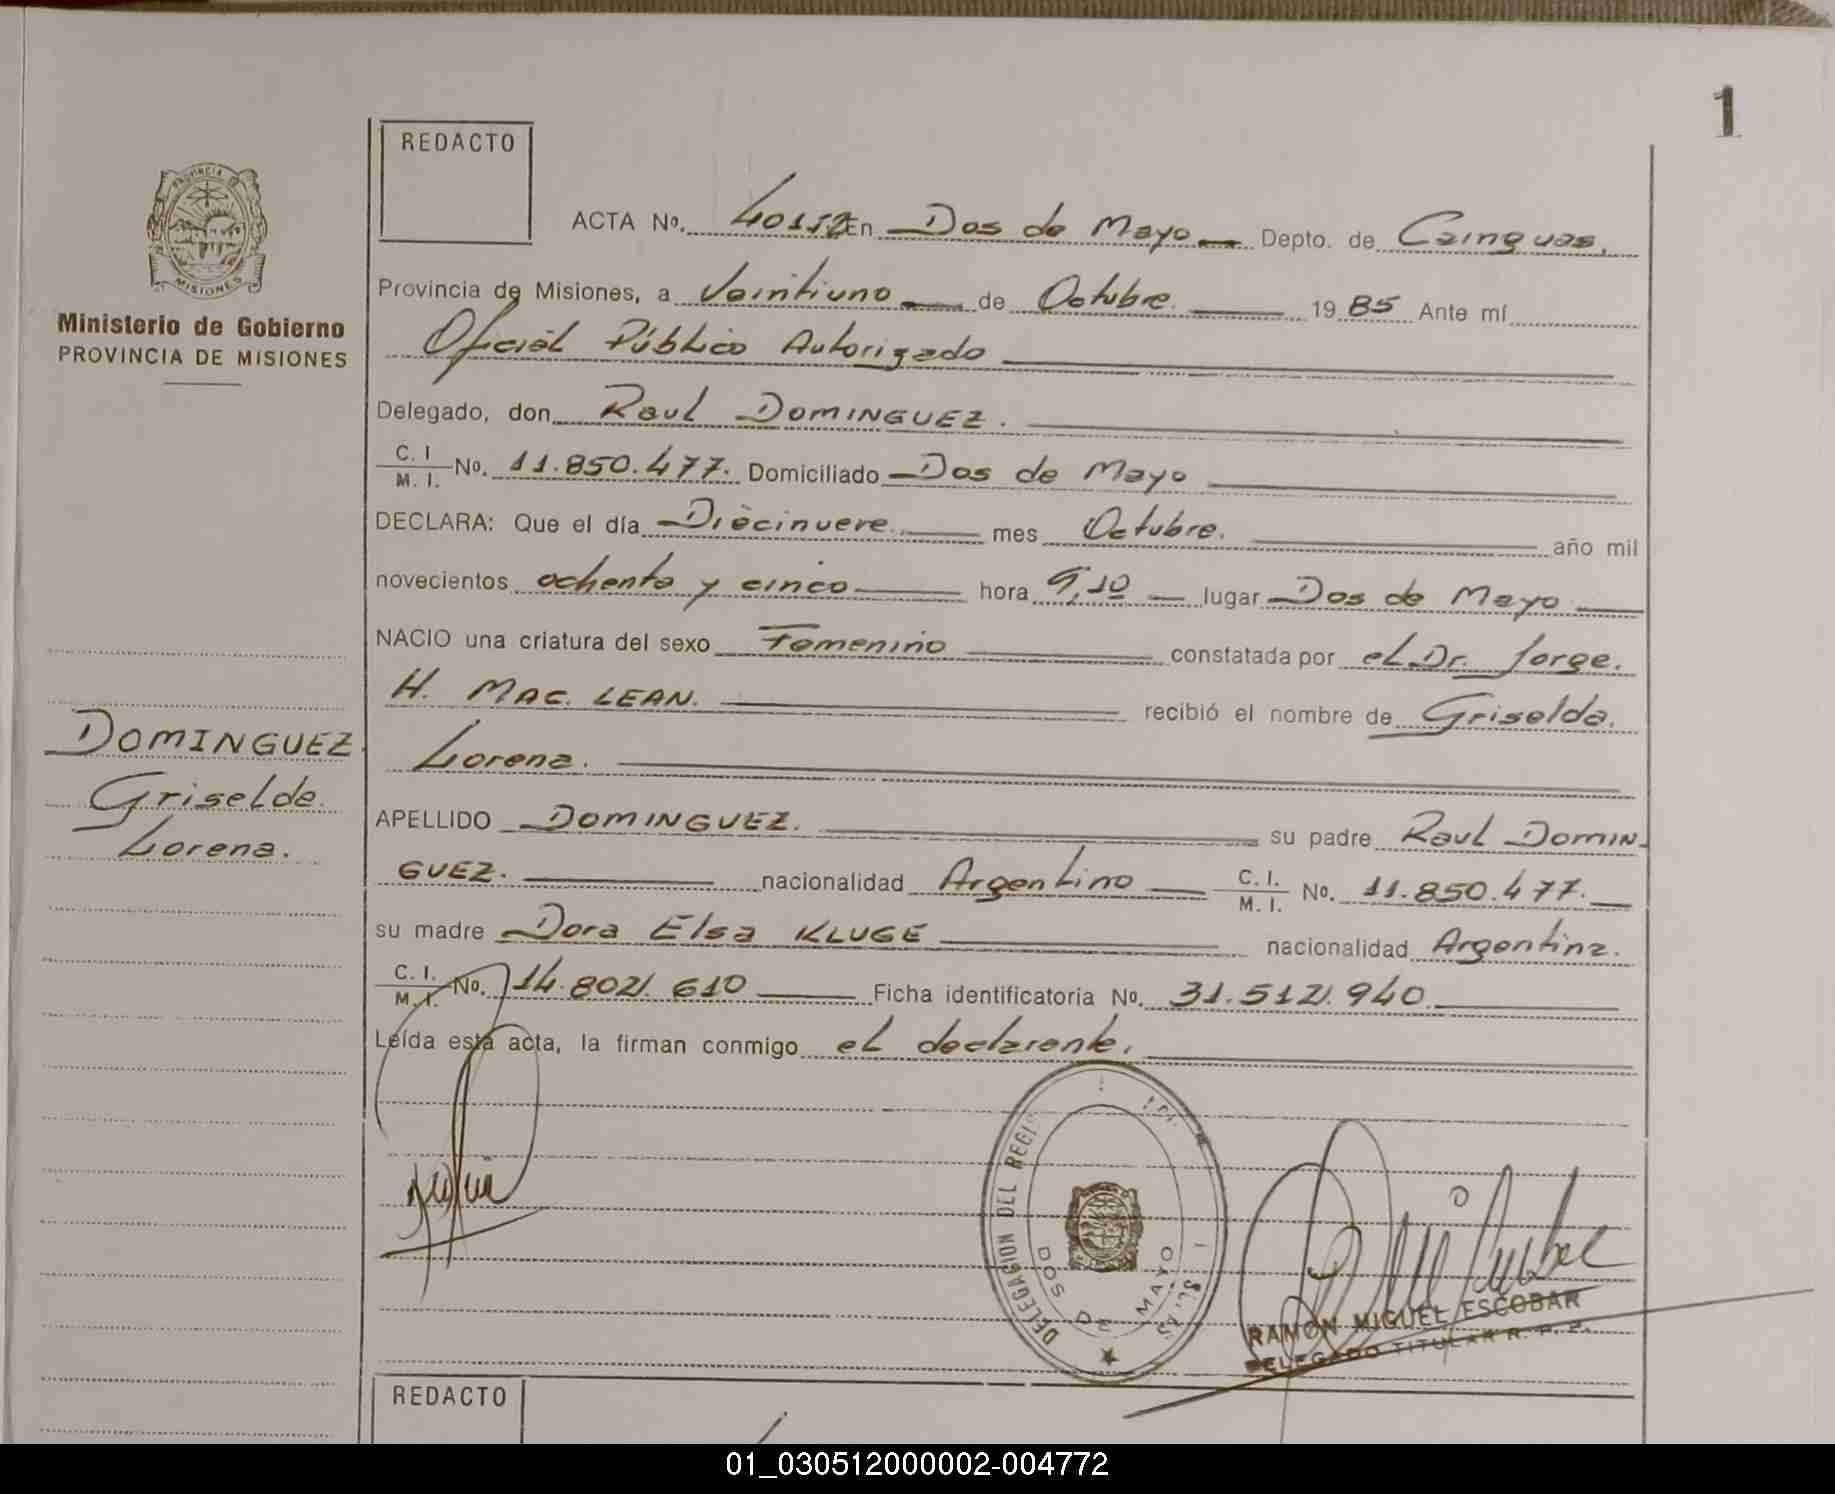 1
REDACTO
PROVINCIA DE
MISIONES
Ministerio de Gobierno
PROVINCIA DE MISIONES
ACTA No. 40152 En Dos de Mayo Depto. de Cainguas.
Provincia de Misiones, a Veintiuno de Octubre 1985 Ante mí
Oficial Público Autorizado
Delegado, don Raul DOMINGUEZ.
C. I. M. I. No. 11.850.477. Domiciliado Dos de Mayo
DECLARA: Que el día Diecinueve mes Octubre. año mil
novecientos ochenta y cinco hora 9,10 lugar Dos de Mayo
NACIO una criatura del sexo Femenino constatada por el Dr. Jorge.
H. MAC. LEAN. recibió el nombre de Griselda.
Lorena.
DOMINGUEZ
Griselda
Lorena.
APELLIDO DOMINGUEZ. su padre Raul DOMIN-
GUEZ. nacionalidad Argentino C. I. M. I. No. 11.850.477.
su madre Dora Elsa KLUGE nacionalidad Argentina.
C. I. M. I. No. 14.802.610 Ficha identificatoria No. 31.512.940
Leída esta acta, la firman conmigo el declarante.
DELEGACION DEL REGI
DOS DE MAYO
RAMON MIGUEL ESCOBAR
DELEGADO TITULAR R. P. P.
REDACTO
01_030512000002-004772